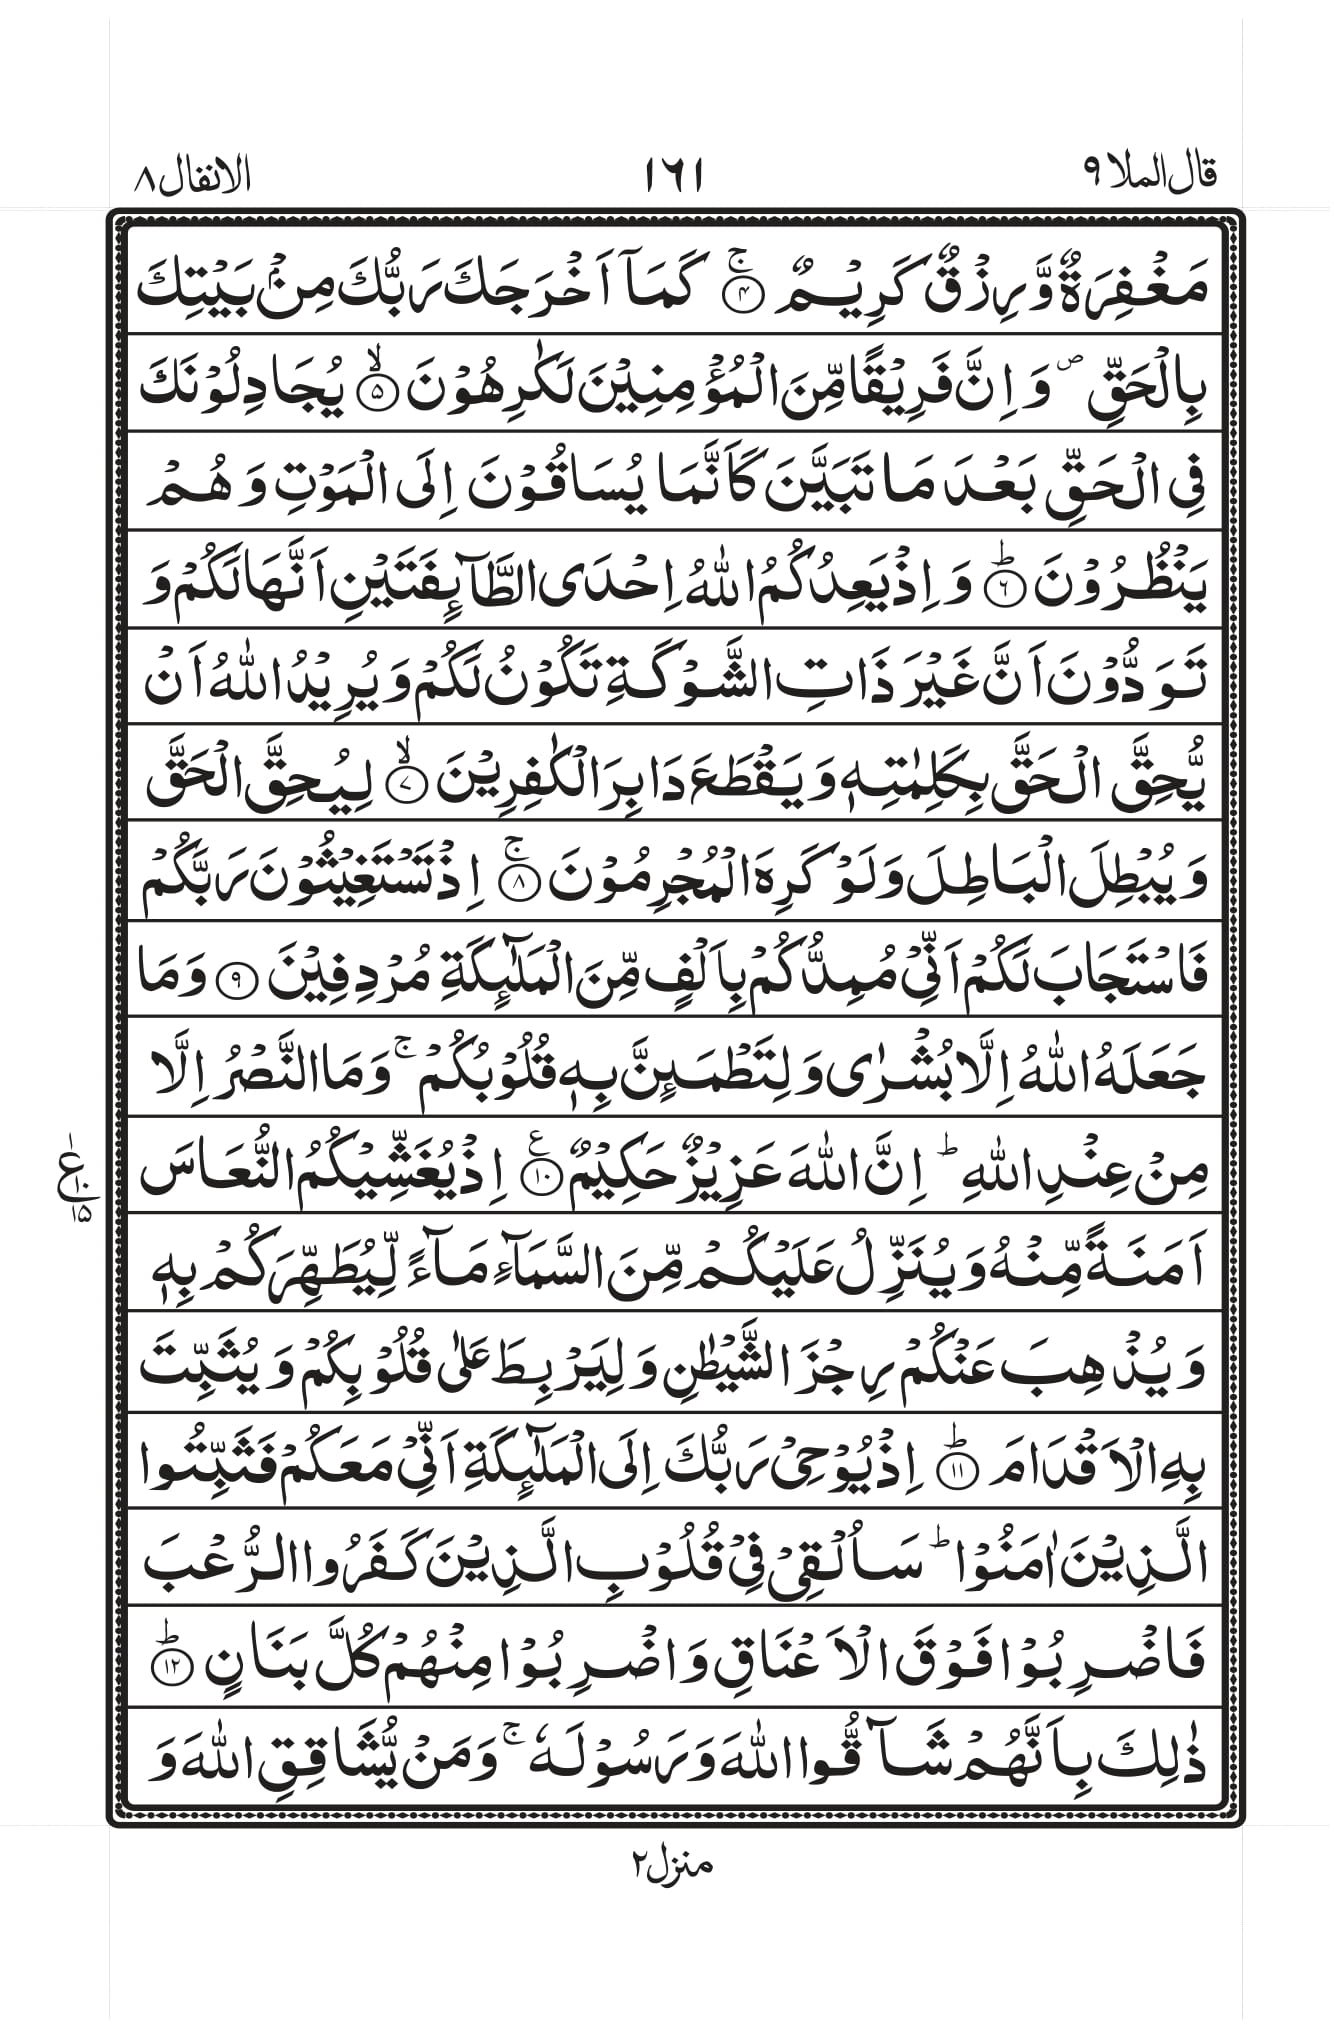 قال الملا ٩
١٦١
الانفال ٨
مَغْفِرَةٌ وَّرِزْقٌ كَرِيْمٌ ۚ﴿۴﴾ كَمَاۤ اَخْرَجَكَ رَبُّكَ مِنْۢ بَيْتِكَ
بِالْحَقِّ ۪ وَ اِنَّ فَرِيْقًا مِّنَ الْمُؤْمِنِيْنَ لَكٰرِهُوْنَ ۙ﴿۵﴾ يُجَادِلُوْنَكَ
فِى الْحَقِّ بَعْدَ مَا تَبَيَّنَ كَاَنَّمَا يُسَاقُوْنَ اِلَى الْمَوْتِ وَ هُمْ
يَنْظُرُوْنَ ؕ﴿۶﴾ وَ اِذْ يَعِدُكُمُ اللّٰهُ اِحْدَى الطَّآئِفَتَيْنِ اَنَّهَا لَكُمْ وَ
تَوَدُّوْنَ اَنَّ غَيْرَ ذَاتِ الشَّوْكَةِ تَكُوْنُ لَكُمْ وَ يُرِيْدُ اللّٰهُ اَنْ
يُّحِقَّ الْحَقَّ بِكَلِمٰتِهٖ وَ يَقْطَعَ دَابِرَ الْكٰفِرِيْنَ ۙ﴿۷﴾ لِيُحِقَّ الْحَقَّ
وَ يُبْطِلَ الْبَاطِلَ وَ لَوْ كَرِهَ الْمُجْرِمُوْنَ ۚ﴿۸﴾ اِذْ تَسْتَغِيْثُوْنَ رَبَّكُمْ
فَاسْتَجَابَ لَكُمْ اَنِّىْ مُمِدُّكُمْ بِاَلْفٍ مِّنَ الْمَلٰٓئِكَةِ مُرْدِفِيْنَ ﴿۹﴾ وَ مَا
جَعَلَهُ اللّٰهُ اِلَّا بُشْرٰى وَ لِتَطْمَئِنَّ بِهٖ قُلُوْبُكُمْ ۚ وَ مَا النَّصْرُ اِلَّا
مِنْ عِنْدِ اللّٰهِ ؕ اِنَّ اللّٰهَ عَزِيْزٌ حَكِيْمٌ ﴿۱۰﴾ع اِذْ يُغَشِّيْكُمُ النُّعَاسَ
ع ۱۰ ۱۵
اَمَنَةً مِّنْهُ وَ يُنَزِّلُ عَلَيْكُمْ مِّنَ السَّمَآءِ مَآءً لِّيُطَهِّرَكُمْ بِهٖ
وَ يُذْهِبَ عَنْكُمْ رِجْزَ الشَّيْطٰنِ وَ لِيَرْبِطَ عَلٰى قُلُوْبِكُمْ وَ يُثَبِّتَ
بِهِ الْاَقْدَامَ ؕ﴿۱۱﴾ اِذْ يُوْحِىْ رَبُّكَ اِلَى الْمَلٰٓئِكَةِ اَنِّىْ مَعَكُمْ فَثَبِّتُوا
الَّذِيْنَ اٰمَنُوْا ؕ سَاُلْقِىْ فِىْ قُلُوْبِ الَّذِيْنَ كَفَرُوا الرُّعْبَ
فَاضْرِبُوْا فَوْقَ الْاَعْنَاقِ وَ اضْرِبُوْا مِنْهُمْ كُلَّ بَنَانٍ ؕ﴿۱۲﴾
ذٰلِكَ بِاَنَّهُمْ شَآقُّوا اللّٰهَ وَ رَسُوْلَهٗ ۚ وَ مَنْ يُّشَاقِقِ اللّٰهَ وَ
منزل ٢